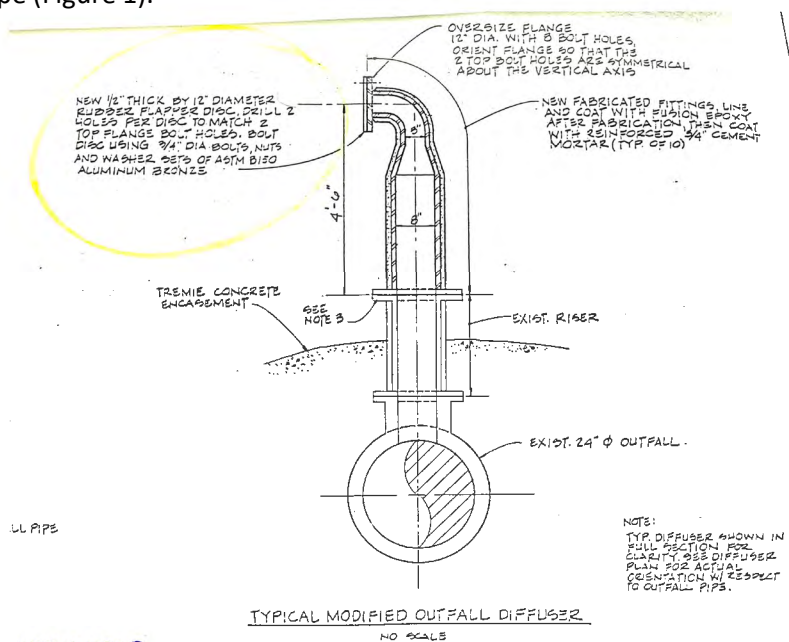 pe (Figure 1).
OVERSIZE FLANGE
12" DIA. WITH 8 BOLT HOLES,
ORIENT FLANGE SO THAT THE
2 TOP BOLT HOLES ARE SYMMETRICAL
ABOUT THE VERTICAL AXIS
NEW 1/2" THICK BY 12" DIAMETER
RUBBER FLAPPER DISC. DRILL 2
HOLES PER DISC TO MATCH 2
TOP FLANGE BOLT HOLES. BOLT
DISC USING 3/4" DIA BOLTS, NUTS
AND WASHER SETS OF ASTM B150
ALUMINUM BRONZE
NEW FABRICATED FITTINGS, LINE
AND COAT WITH FUSION EPOXY
AFTER FABRICATION, THEN COAT
WITH REINFORCED 3/4" CEMENT
MORTAR (TYP. OF 10)
4'-6"
8"
TREMIE CONCRETE
ENCASEMENT
SEE
NOTE 3
EXIST. RISER
EXIST. 24" Φ OUTFALL.
LL PIPE
NOTE:
TYP. DIFFUSER SHOWN IN
FULL SECTION FOR
CLARITY. SEE DIFFUSER
PLAN FOR ACTUAL
ORIENTATION W/ RESPECT
TO OUTFALL PIPE.
TYPICAL MODIFIED OUTFALL DIFFUSER
NO SCALE